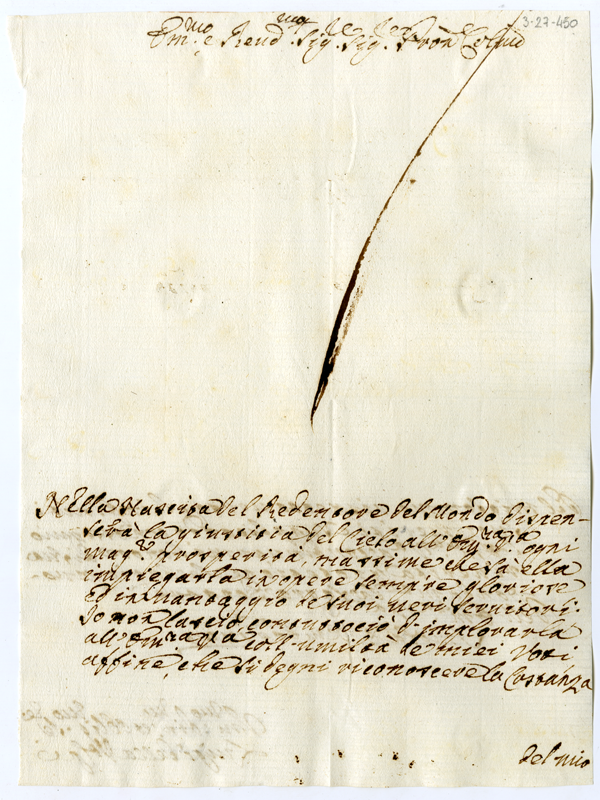 3-27-450
Em.mo e Reud.mo Sig.re Sig.re Pron Colmo
Nella Nascita del Redentore del Mondo dispen-
serà la giustizia del Cielo all'Em.za V.ra ogni
mag.re prosperità, massime che sà ella
impiegarla in opere sempre gloriose
ed in vantaggio de suoi veri servitori.
Io non lascio con tuttociò d'implorarla
all'Em.za V.ra coll'umiltà de miei Voti
affine, che si degni riconoscere la Costanza
del mio